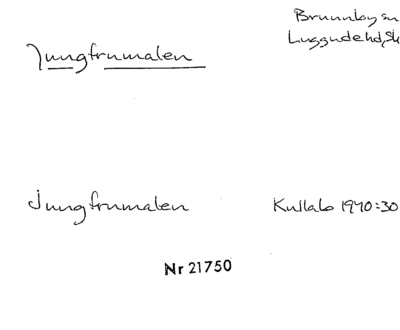 Brunnby sn
Jungfrumalen
Luggude hd, Sk
jungfrumalen
Kullab 1940:30
Nr 21750